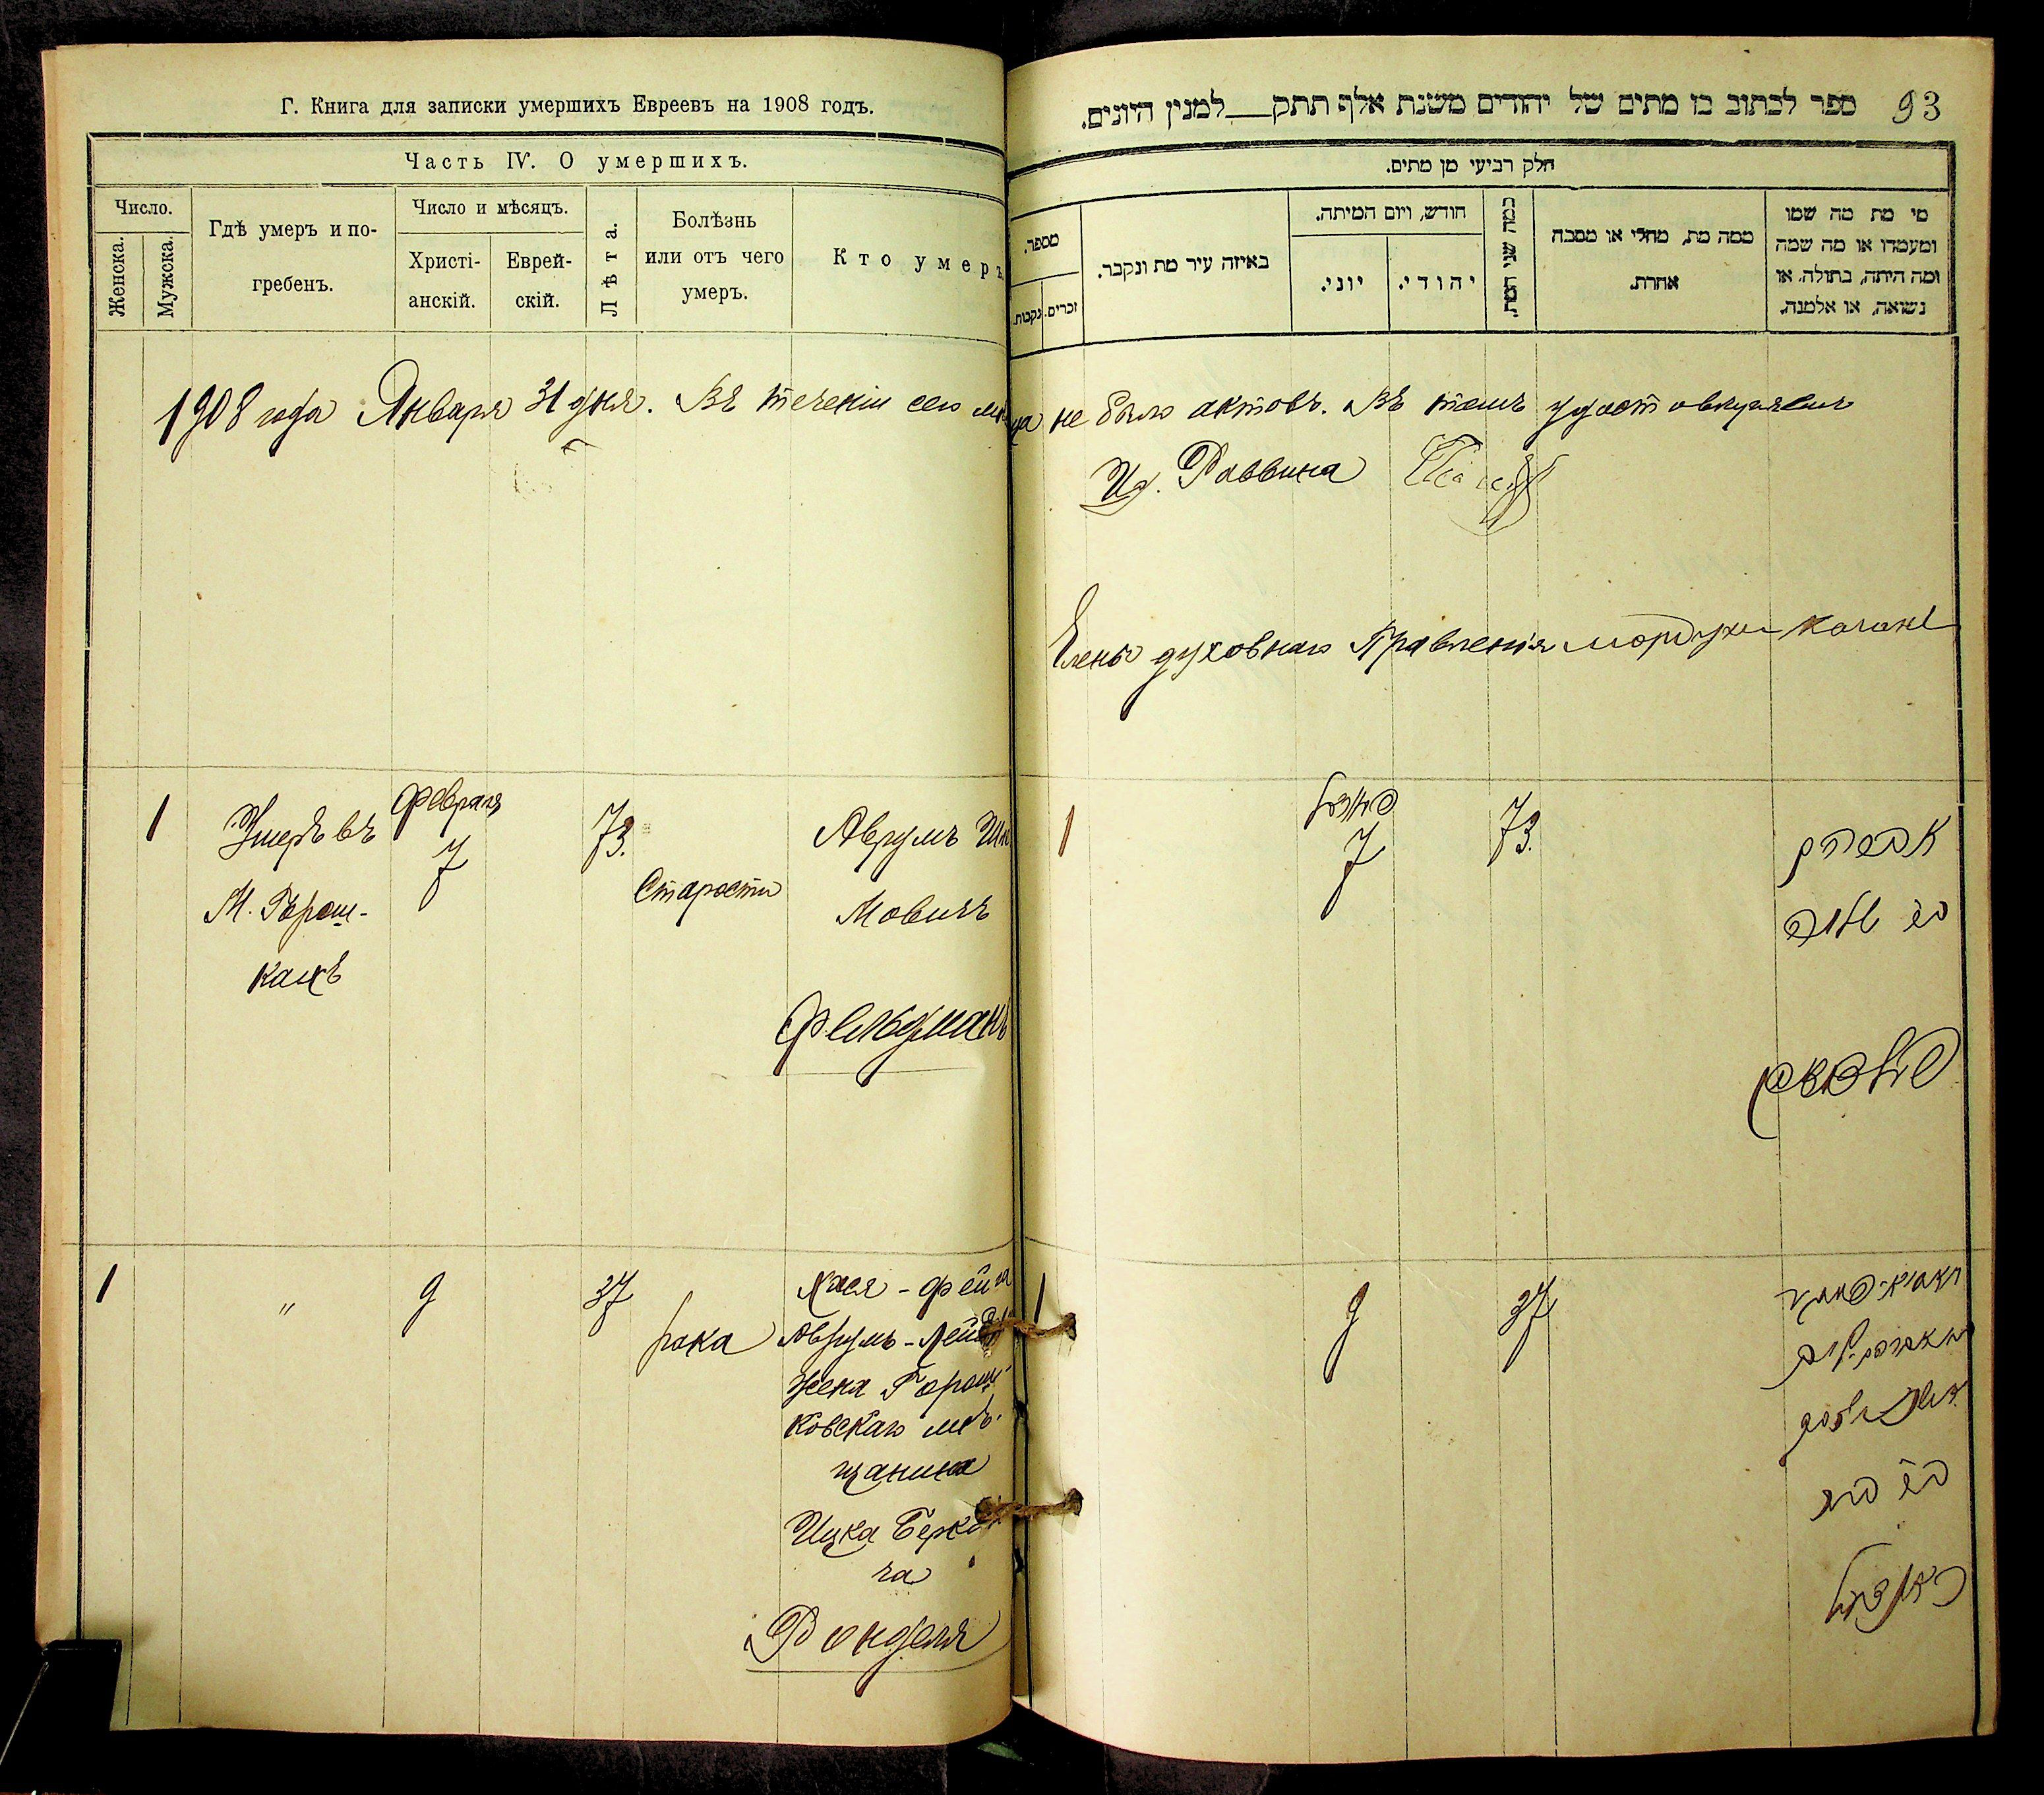 Г. Книга для записки умершихъ Евреевъ на 1908 годъ.
Часть IV. О умершихъ.
Число.
Женска.
Мужска.
Гдѣ умеръ и по-
гребенъ.
Число и мѣсяцъ.
Христі-
анскій.
Еврей-
скій.
Лѣта.
Болѣзнь
или отъ чего
умеръ.
Кто умеръ
1908 года Января 31 дня. Въ теченіи сего мѣ
1
Умеръ въ
М. Горош-
кахъ
Февраля
7
73.
Старости
Аврумъ
Мовичъ
Фельдманъ
1
"
9
37
рака
Хася - Фейга
Аврумъ - Лейб
жена Горош-
ковскаго мѣ-
щанина
Ицка Берко
ча
Ронделя
93
ספר לכתוב בו מתים של יהודים משנת אלף תתק__למנין היונים.
חלק רביעי מן מתים.
מספר.
נקבות.
זכרים.
באיזה עיר מת ונקבר.
חודש, ויום המיתה.
יוני.
יהודי.
כמה שני המת.
ממה מת, מחלי או מסבה
אחרת.
מי מת מה שמו
ומעמדו או מה שמה
ומה היתה, בתולה, או
נשואה, או אלמנה.
ца не было актовъ. Въ томъ удостовѣряемъ
И. д. Раввина
Члены духовнаго Правленія Мордухъ
1
7
73.
אברהם
פעלדמאן
1
9
37